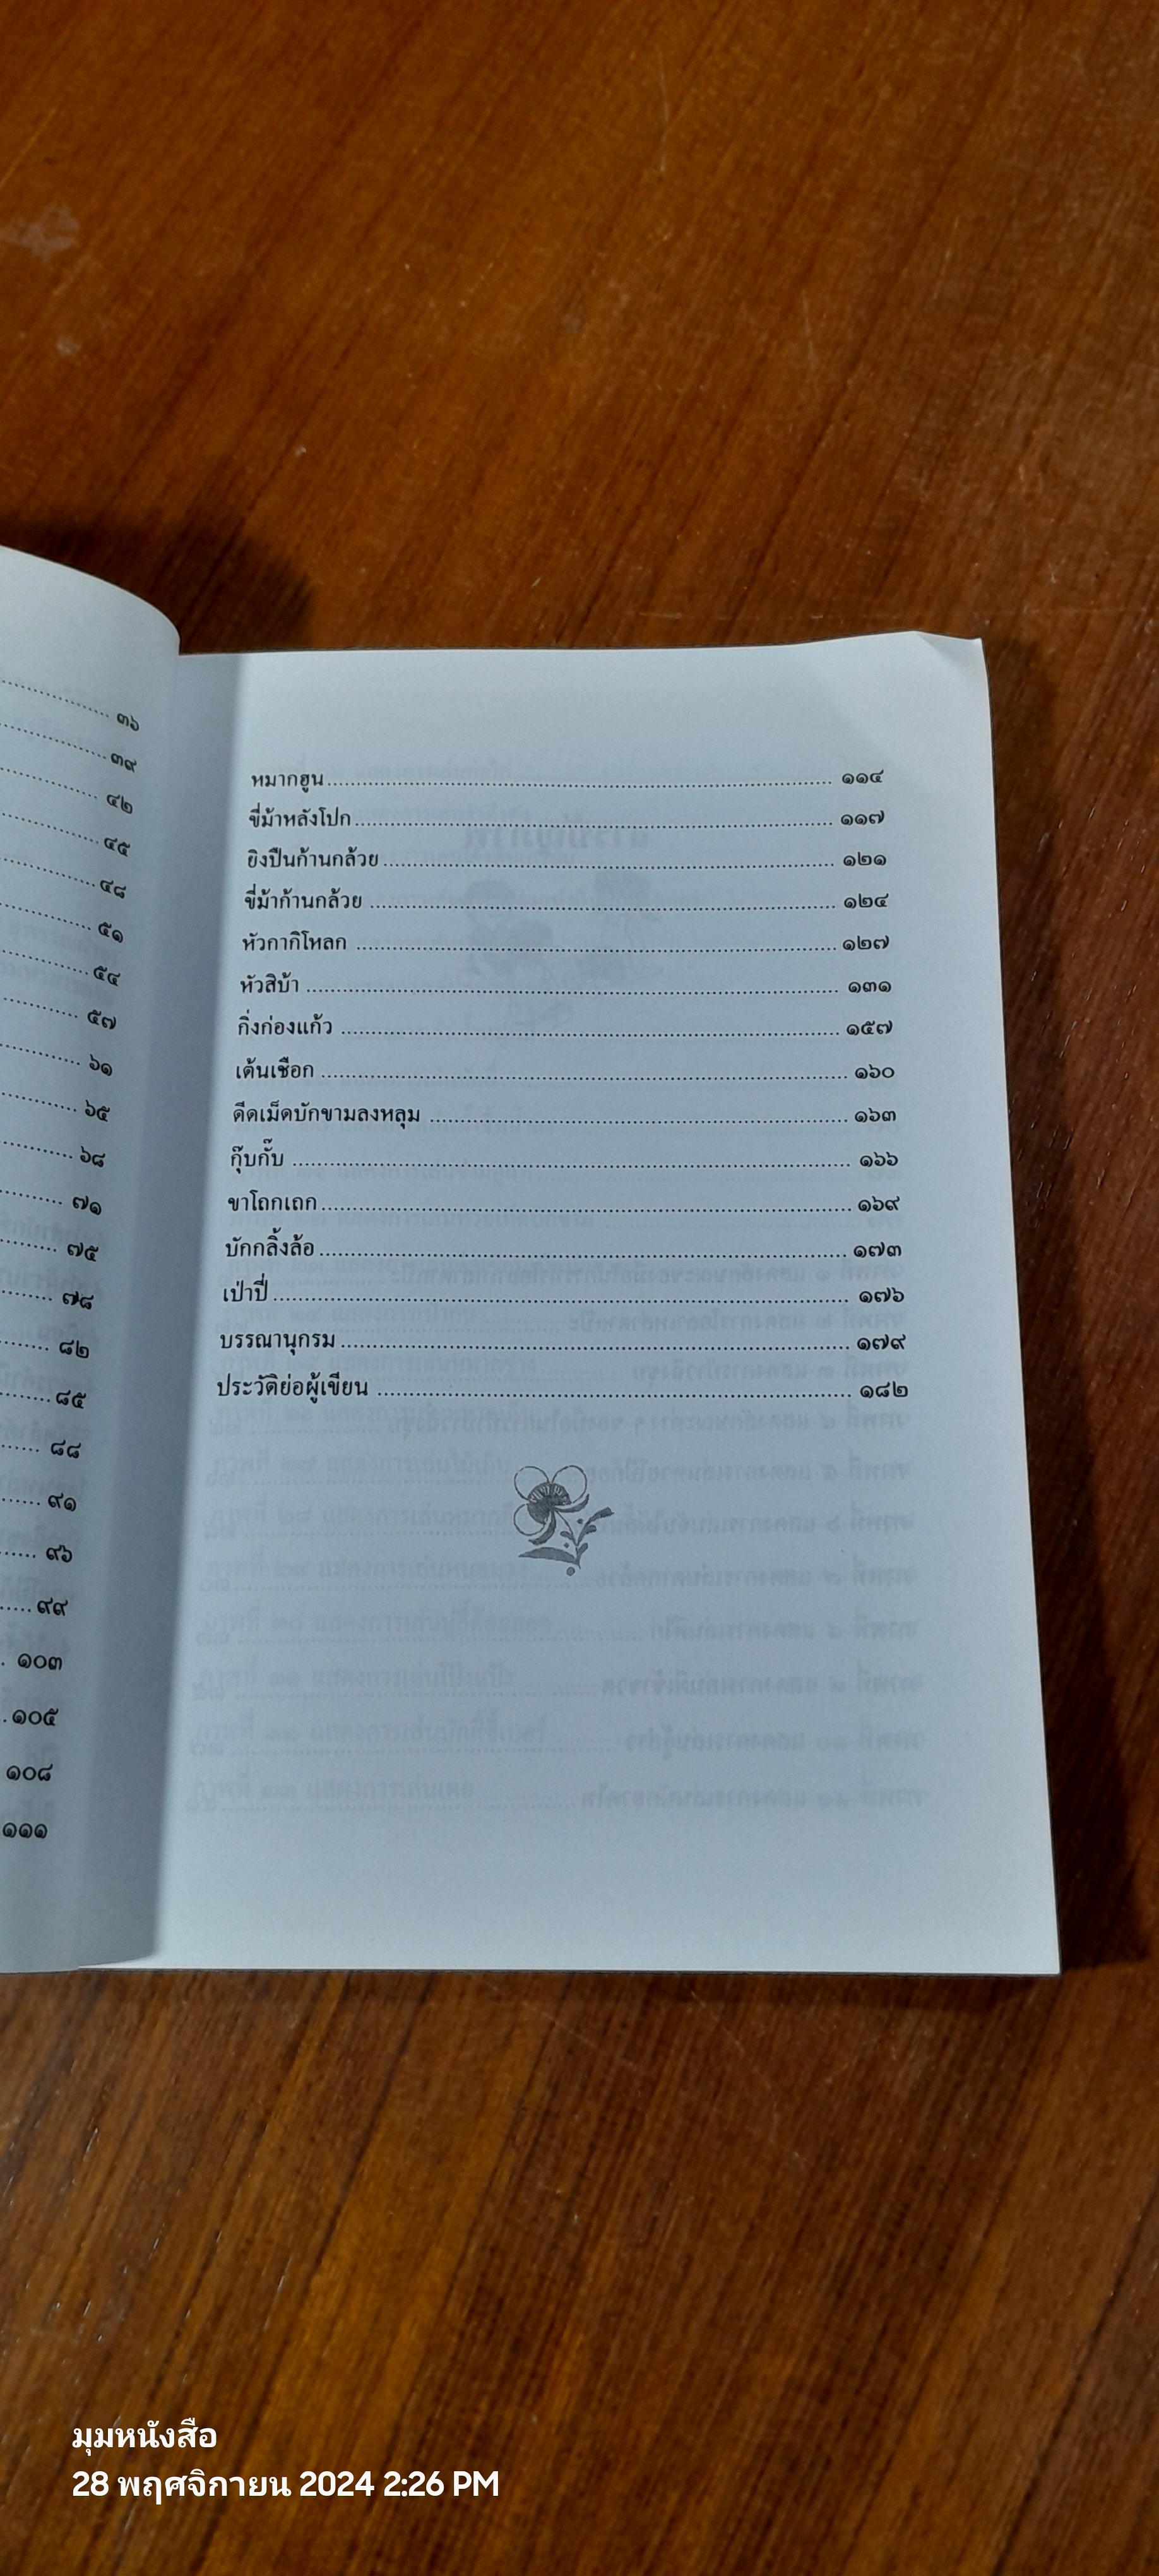 ๓๖
๓๙
๔๒
๔๕
๔๘
๕๑
๕๔
๕๗
๖๑
๖๕
๖๘
๗๑
๗๕
๗๘
๘๒
๘๕
๘๘
๙๑
๙๖
๙๙
๑๐๓
๑๐๕
๑๐๘
๑๑๑
หมากฮูน ๑๑๔
ขี่ม้าหลังโปก ๑๑๗
ยิงปืนก้านกล้วย ๑๒๑
ขี่ม้าก้านกล้วย ๑๒๔
หัวกากิโหลก ๑๒๗
หัวสิบ้า ๑๓๑
กิ่งก่องแก้ว ๑๕๗
เต้นเชือก ๑๖๐
ดีดเม็ดบักขามลงหลุม ๑๖๓
กุ๊บกั๊บ ๑๖๖
ขาโถกเถก ๑๖๙
บักกลิ้งล้อ ๑๗๓
เป่าปี่ ๑๗๖
บรรณานุกรม ๑๗๙
ประวัติย่อผู้เขียน ๑๘๒
มุมหนังสือ
28 พฤศจิกายน 2024 2:26 PM